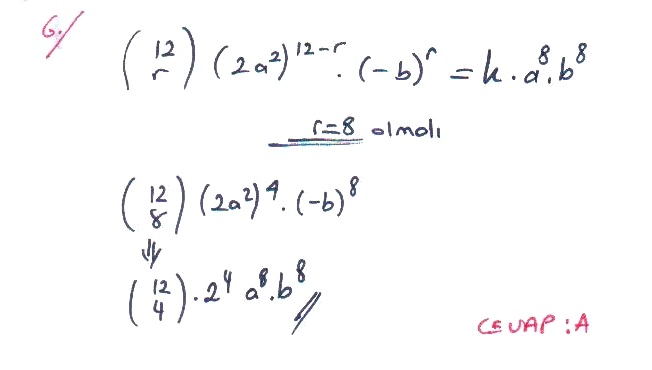 6.)
(12 r) (2a²)¹²⁻ʳ . (-b)ʳ = k . a⁸ . b⁸
r=8 olmalı
(12 8) (2a²)⁴ . (-b)⁸
⇓
(12 4) . 2⁴ a⁸ . b⁸ //
CEVAP : A